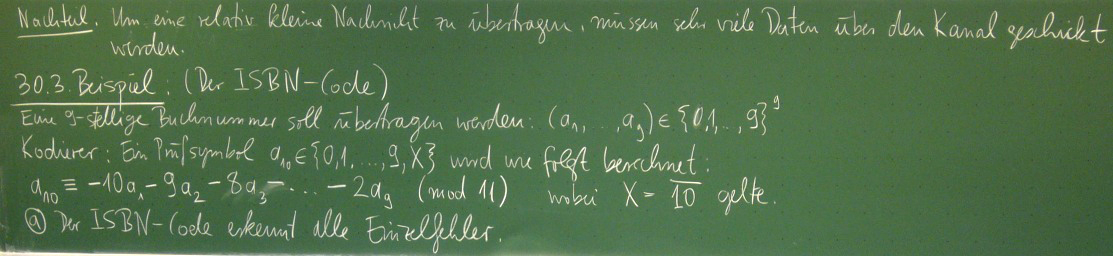 Nachteil. Um eine relativ kleine Nachricht zu übertragen, müssen sehr viele Daten über den Kanal geschickt
werden.
30.3. Beispiel: (Der ISBN-Code)
Eine 9-stellige Buchnummer soll übertragen werden: (a₁, ..., a₉) ∈ {0,1,..,9}⁹
Kodierer: Ein Prüfsymbol a₁₀ ∈ {0,1,...,9,X} wird wie folgt berechnet:
a₁₀ ≡ -10a₁ - 9a₂ - 8a₃ - ... - 2a₉ (mod 11) wobei X = 1̅0̅ gelte.
ⓐ Der ISBN-Code erkennt alle Einzelfehler.